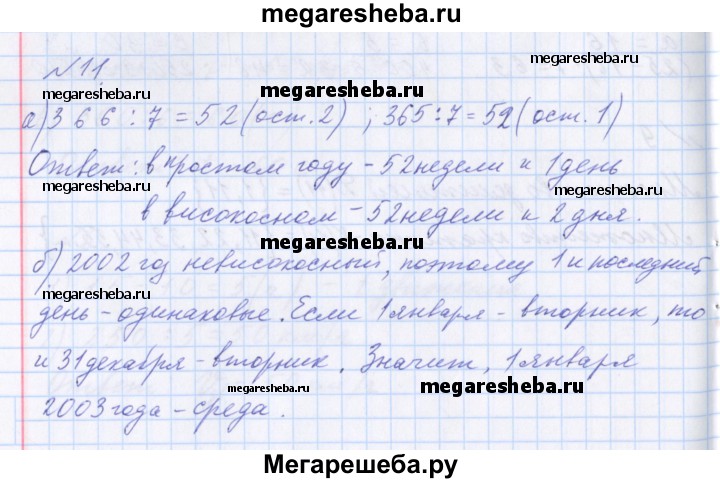 megaresheba.ru
megaresheba.ru
№11
megaresheba.ru megaresheba.ru megaresheba.ru
а) 366:7=52(ост.2) ; 365:7=52(ост.1)
Ответ: в простом году - 52 недели и 1 день
megaresheba.ru megaresheba.ru
в високосном - 52 недели и 2 дня.
megaresheba.ru
б) 2002 год невисокосный, поэтому 1 и последний
megaresheba.ru megaresheba.ru
день - одинаковые. Если 1 января - вторник, то
и 31 декабря - вторник. Значит, 1 января
megaresheba.ru megaresheba.ru
2003 года - среда.
Мегарешеба.ру